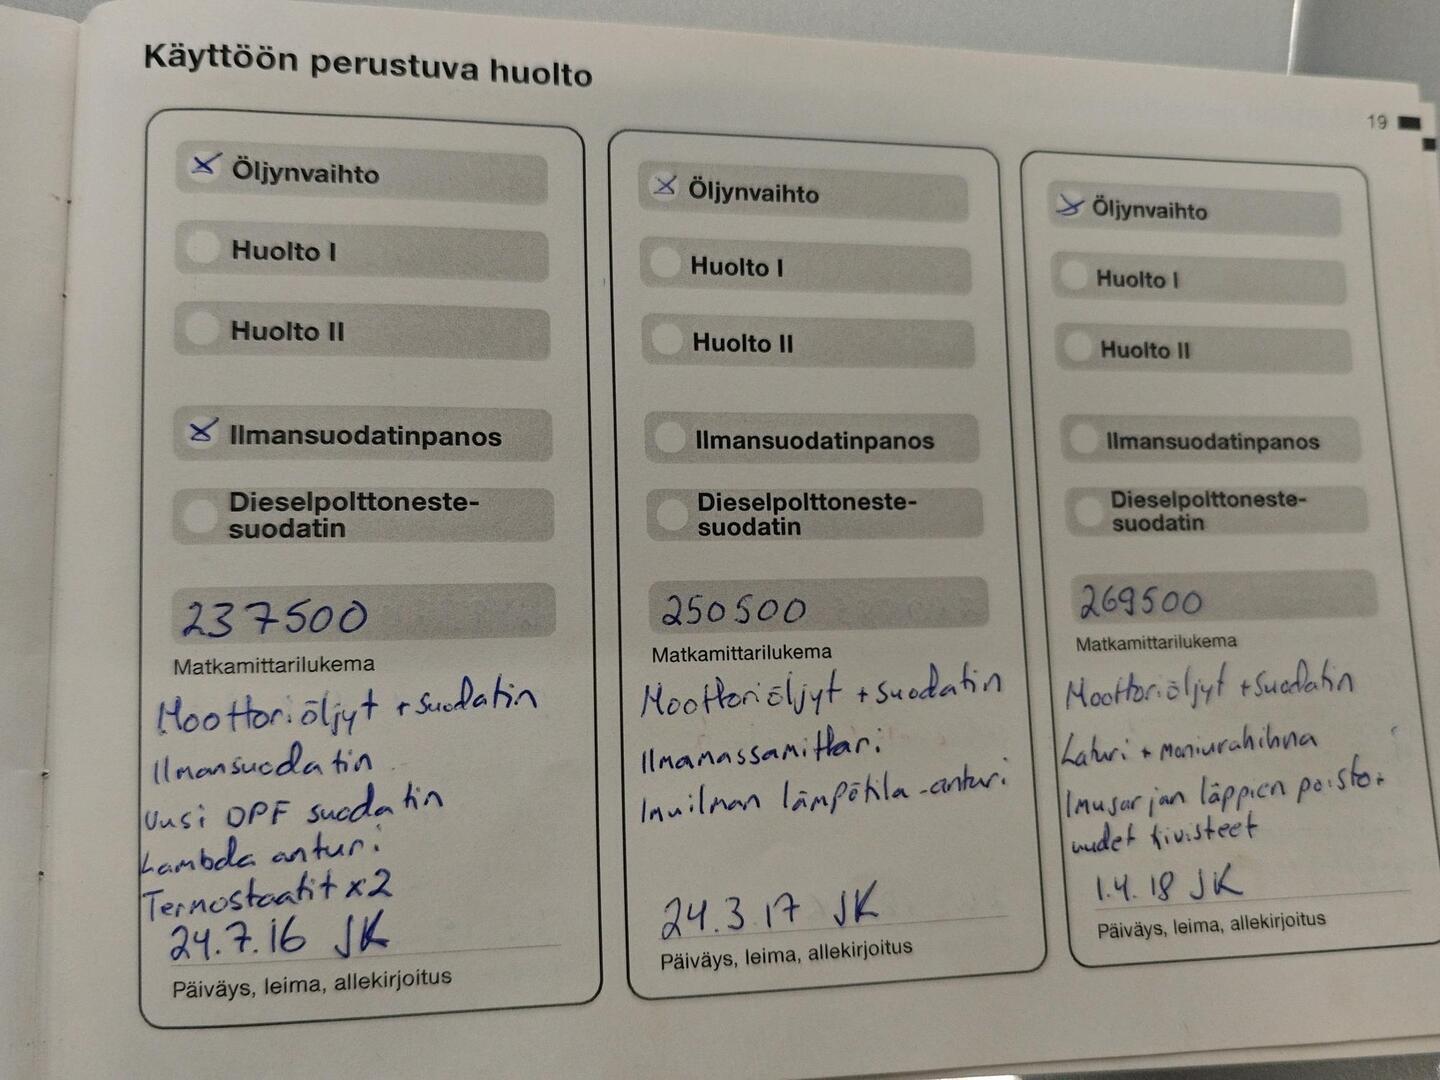 Käyttöön perustuva huolto
19
Öljynvaihto
Huolto I
Huolto II
Ilmansuodatinpanos
Dieselpolttoneste-
suodatin
237500
Matkamittarilukema
Moottoriöljyt + suodatin
Ilmansuodatin
Uusi DPF suodatin
Lambda anturi
Termostaatit x2
24.7.16 JK
Päiväys, leima, allekirjoitus
Öljynvaihto
Huolto I
Huolto II
Ilmansuodatinpanos
Dieselpolttoneste-
suodatin
250500
Matkamittarilukema
Moottoriöljyt + suodatin
Ilmamassamittari
Imuilman lämpötila-anturi
24.3.17 JK
Päiväys, leima, allekirjoitus
Öljynvaihto
Huolto I
Huolto II
Ilmansuodatinpanos
Dieselpolttoneste-
suodatin
269500
Matkamittarilukema
Moottoriöljyt + suodatin
Laturi + moniurahihna
Imusarjan läppien poisto +
uudet tiivisteet
1.4.18 JK
Päiväys, leima, allekirjoitus